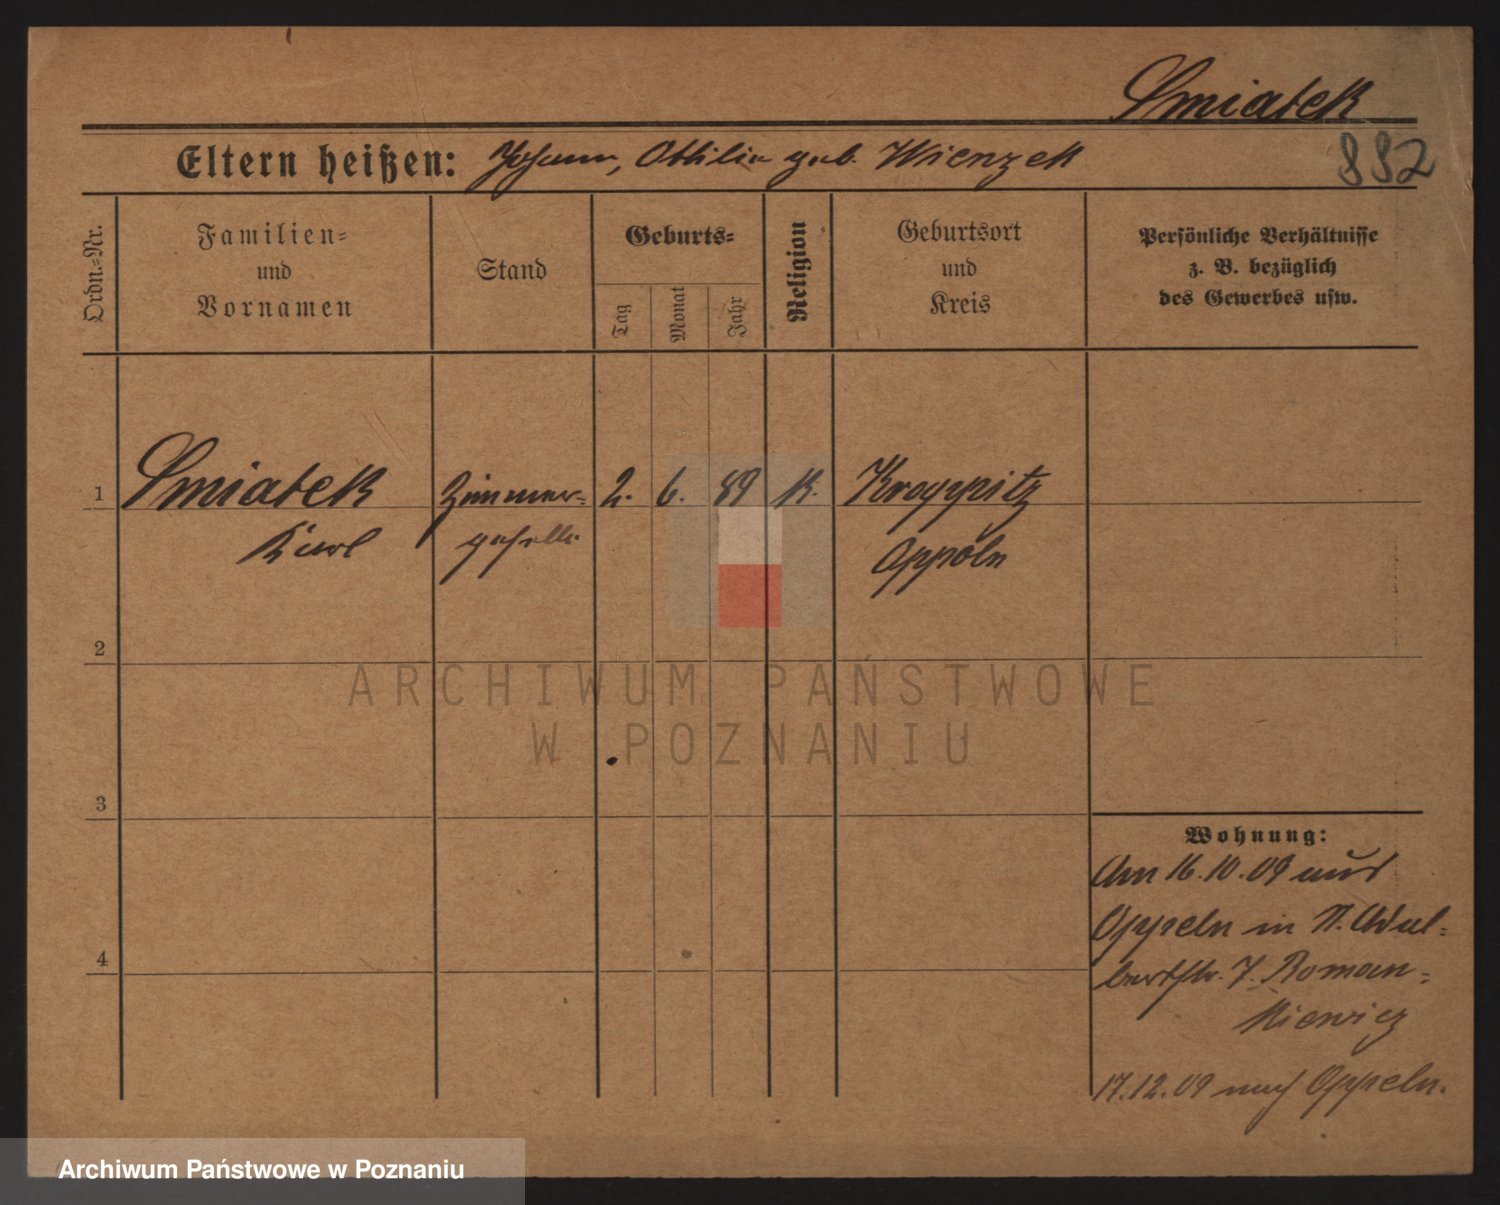 Smiatek
Eltern heißen: Johann, Ottilie geb. Wienzek
882
Ordn.-Nr.
Familien-
und
Vornamen
Stand
Geburts-
Tag
Monat
Jahr
Religion
Geburtsort
und
Kreis
Persönliche Verhältnisse
z. B. bezüglich
des Gewerbes usw.
1 Smiatek Zimmer- 2. 6. 89 K. Kroppitz
Karl geselle Oppeln
2
ARCHIWUM PAŃSTWOWE
W POZNANIU
3
Wohnung:
Am 16.10.09 aus
Oppeln in
4
7. Roman-
kiewicz
17.12.09 nach Oppeln.
Archiwum Państwowe w Poznaniu